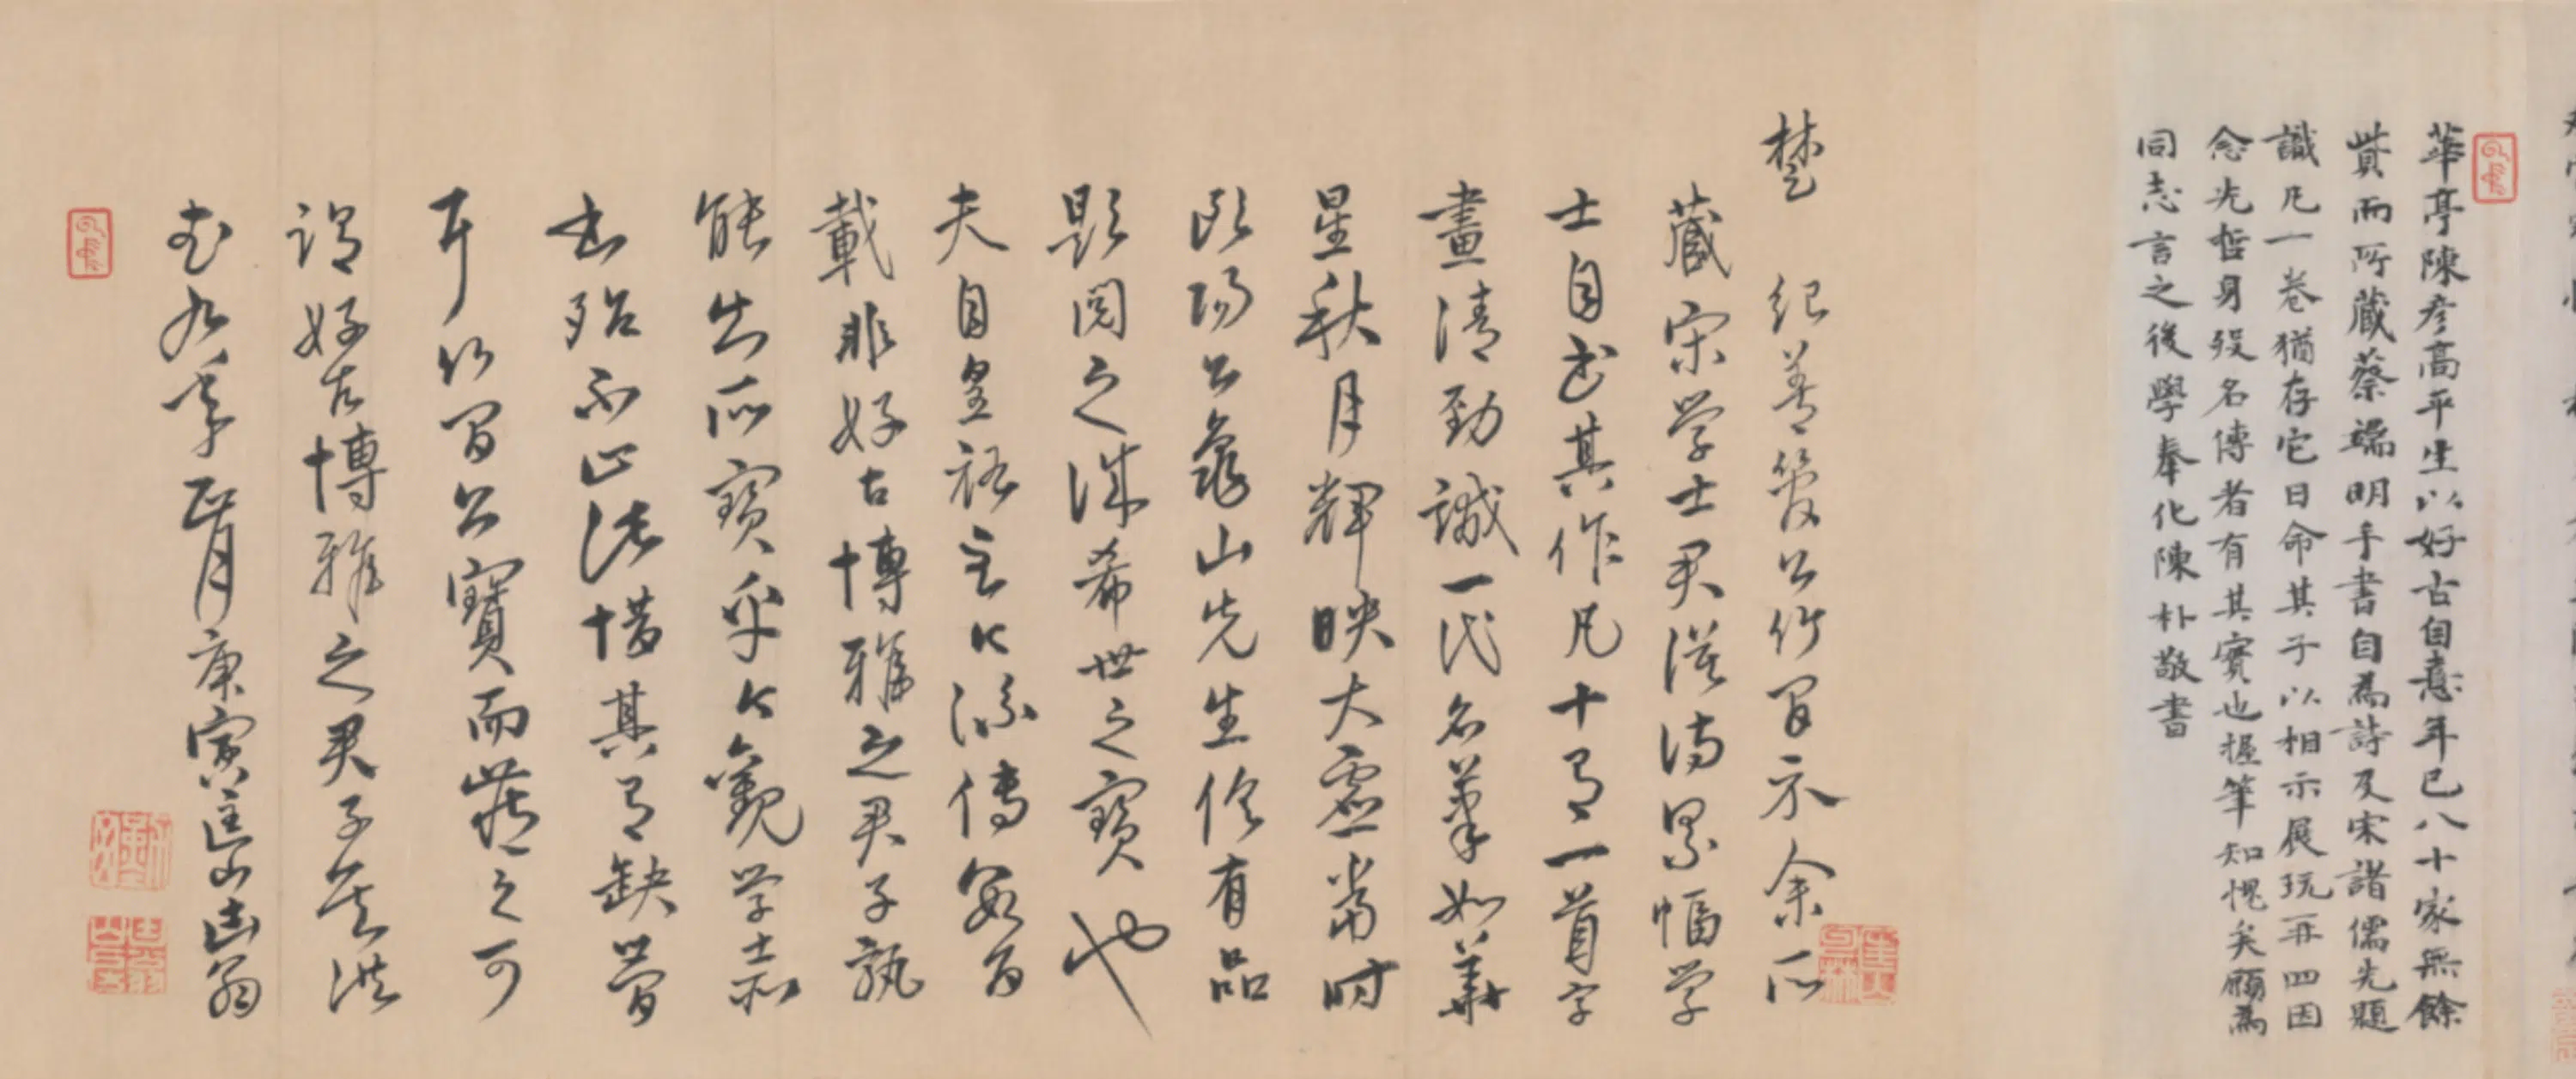 華亭陳彥高平生以好古自意年已八十家無餘
貲而所藏蔡端明手書自為詩及宋諸儒先題
識凡一卷猶存它日命其子以相示展玩再四因
念先哲身歿名傳者有其實也握筆知愧矣願為
同志言之後學奉化陳朴敬書
楚 紀善管公竹間示余所
藏宋学士君謨詩累幅学
士自書其作凡十有一首字
畫清勁誠一代名筆如華
星秋月輝映大虛當時
欧陽公龜山先生俱有品
題閱之誠希世之寶也
夫自皇祐至今流傳數百
載非好古博雅之君子孰
能知所寶乎今觀学士
書殆不止法惜其有缺
耳竹間公寶而藏之可
謂好古博雅之君子矣洪
武九年正月庚寅匡山翁